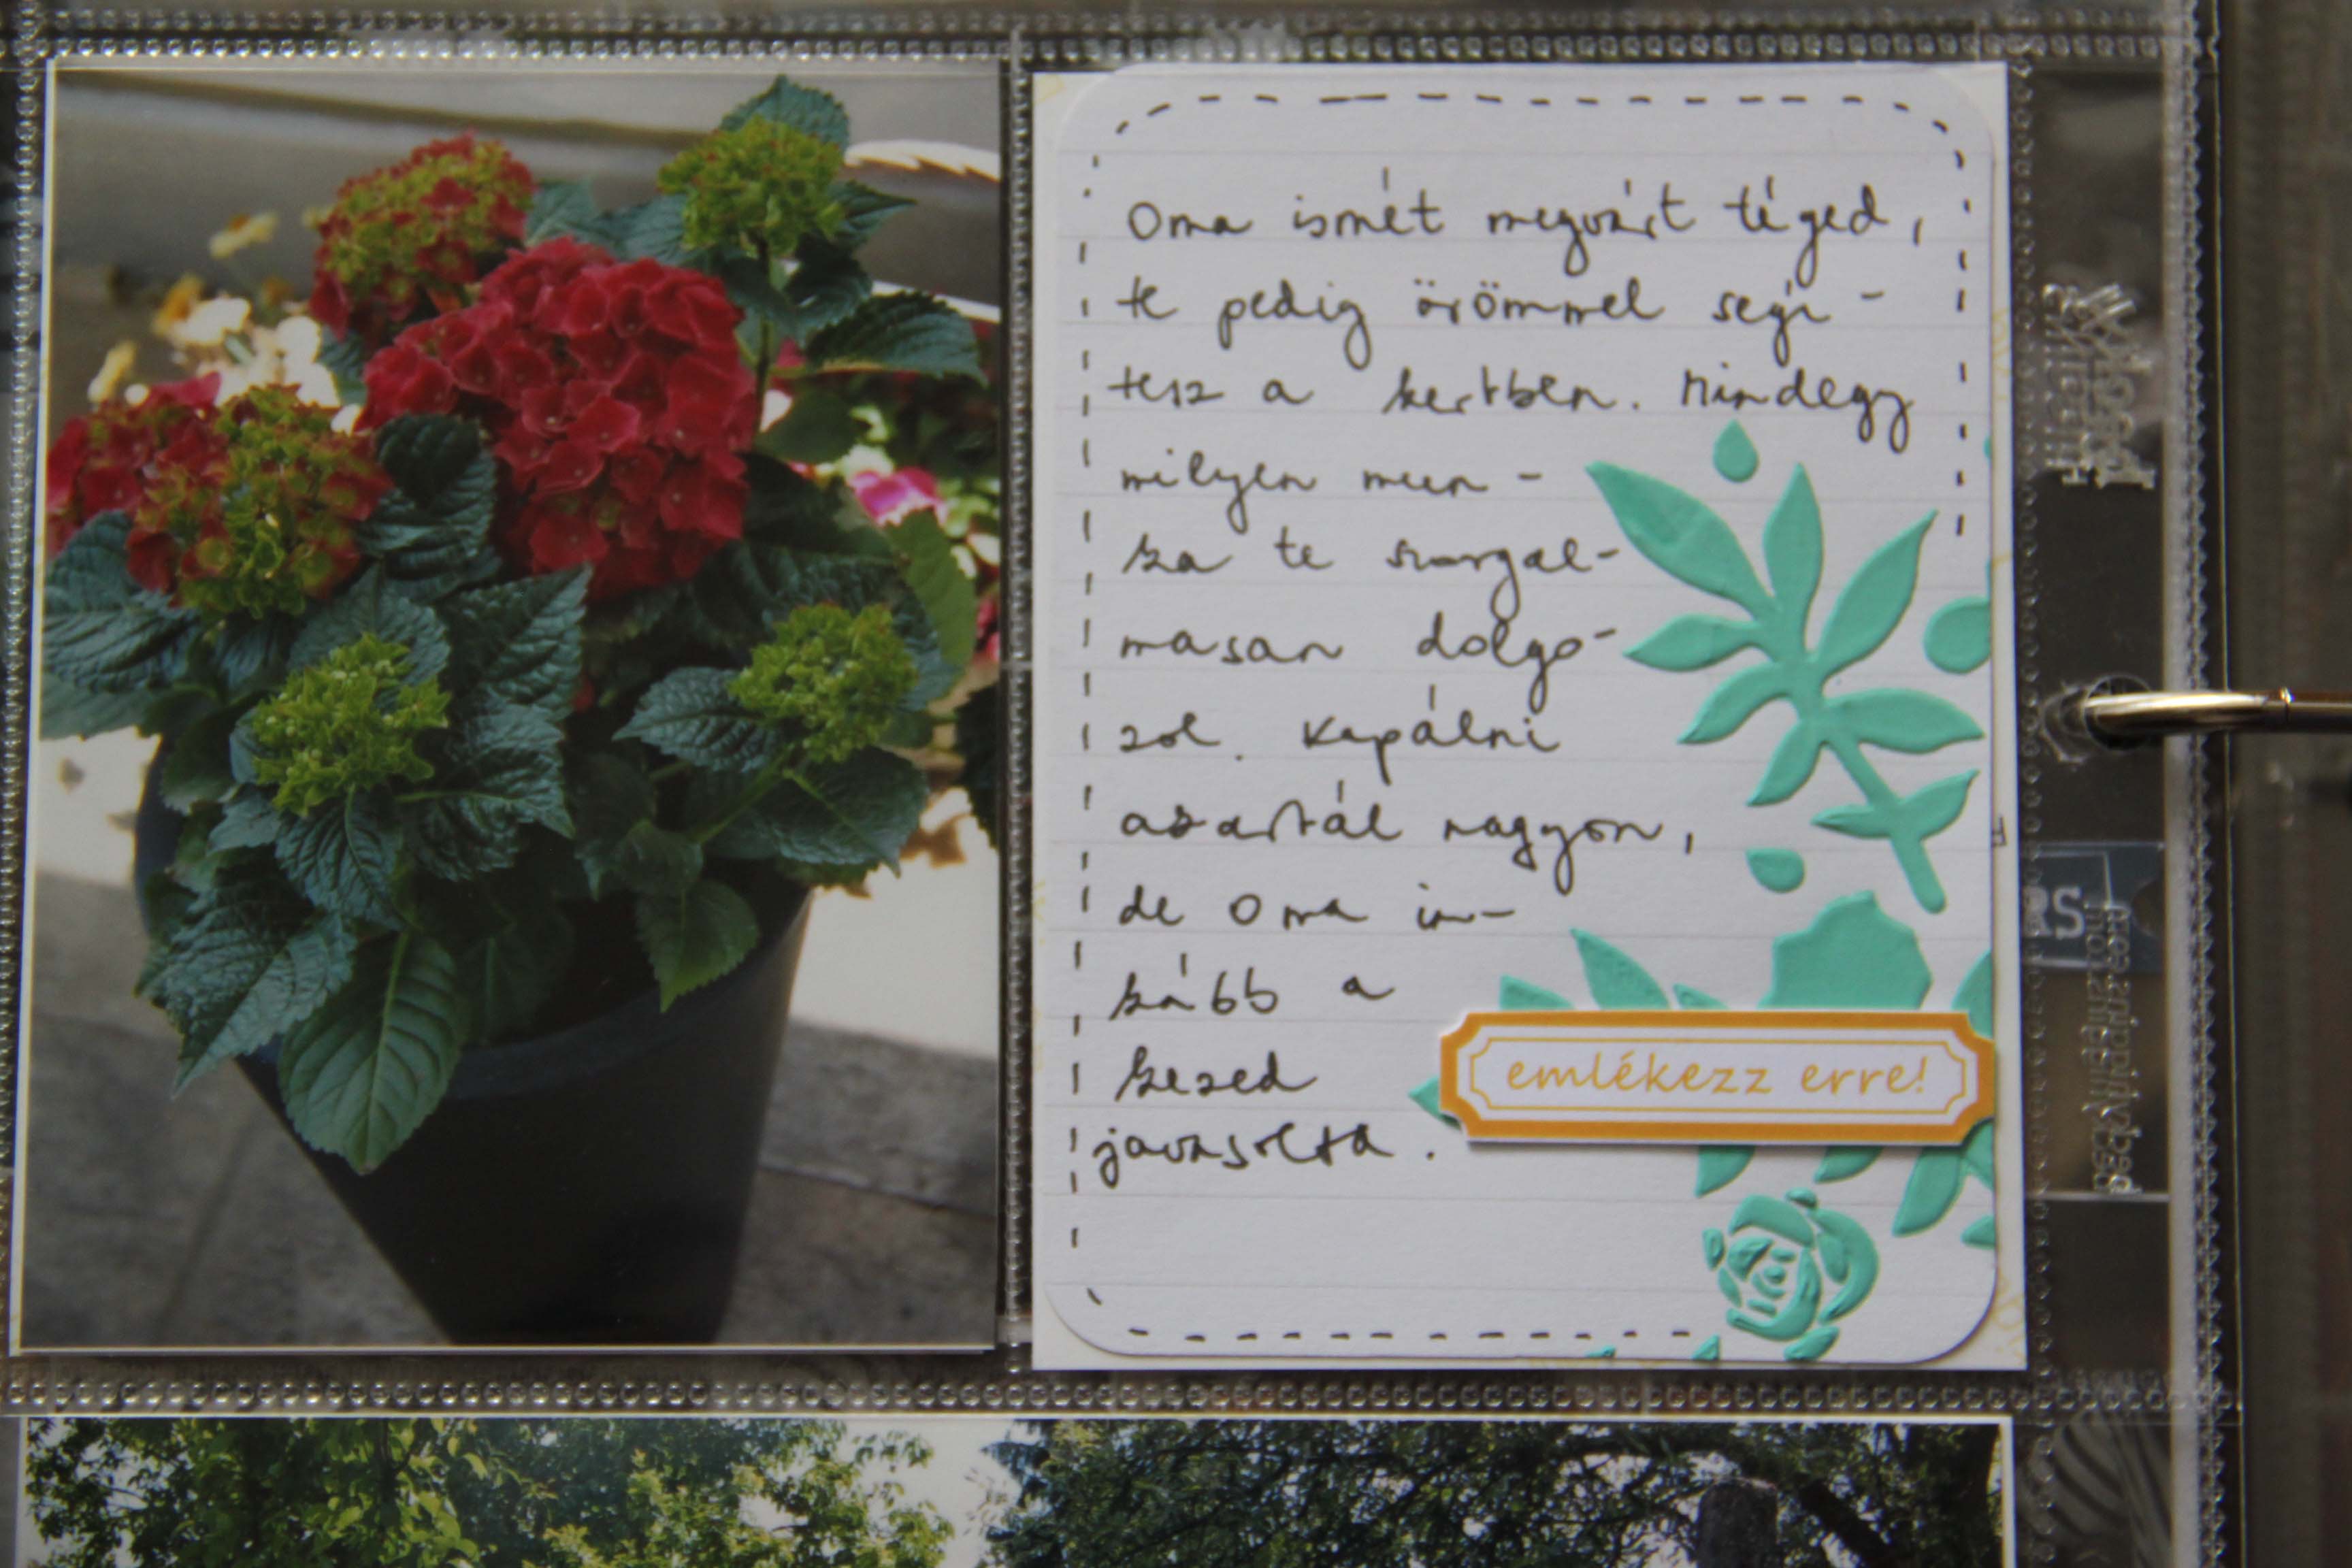 Oma ismét megvárt téged,
te pedig örömmel segí-
tesz a kertben. Mindegy
milyen mun-
ka te szorgal-
masan dolgo-
zol. Kapálni
akartál nagyon,
de Oma in-
kább a
kezed
javasolta.
emlékezz erre!
RS